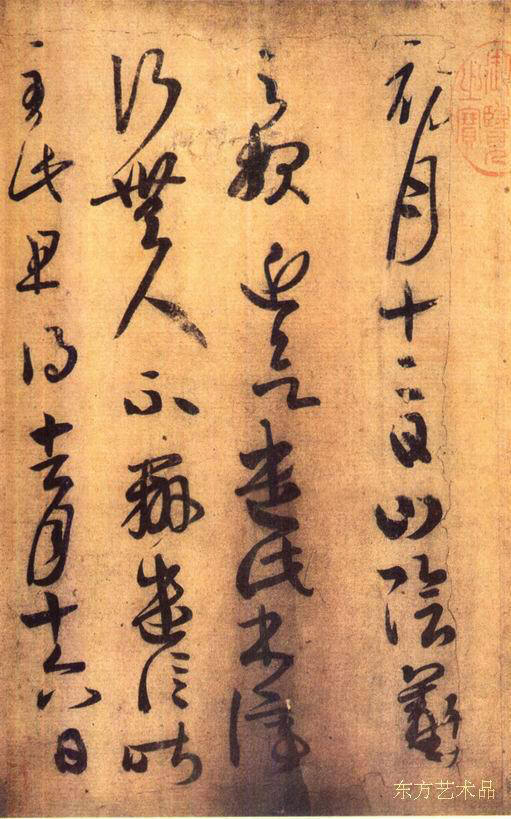 初月十二日山陰羲
之報近欲遣此書停
行無人不辦遣信昨
至此且得去月十六日
东方艺术品